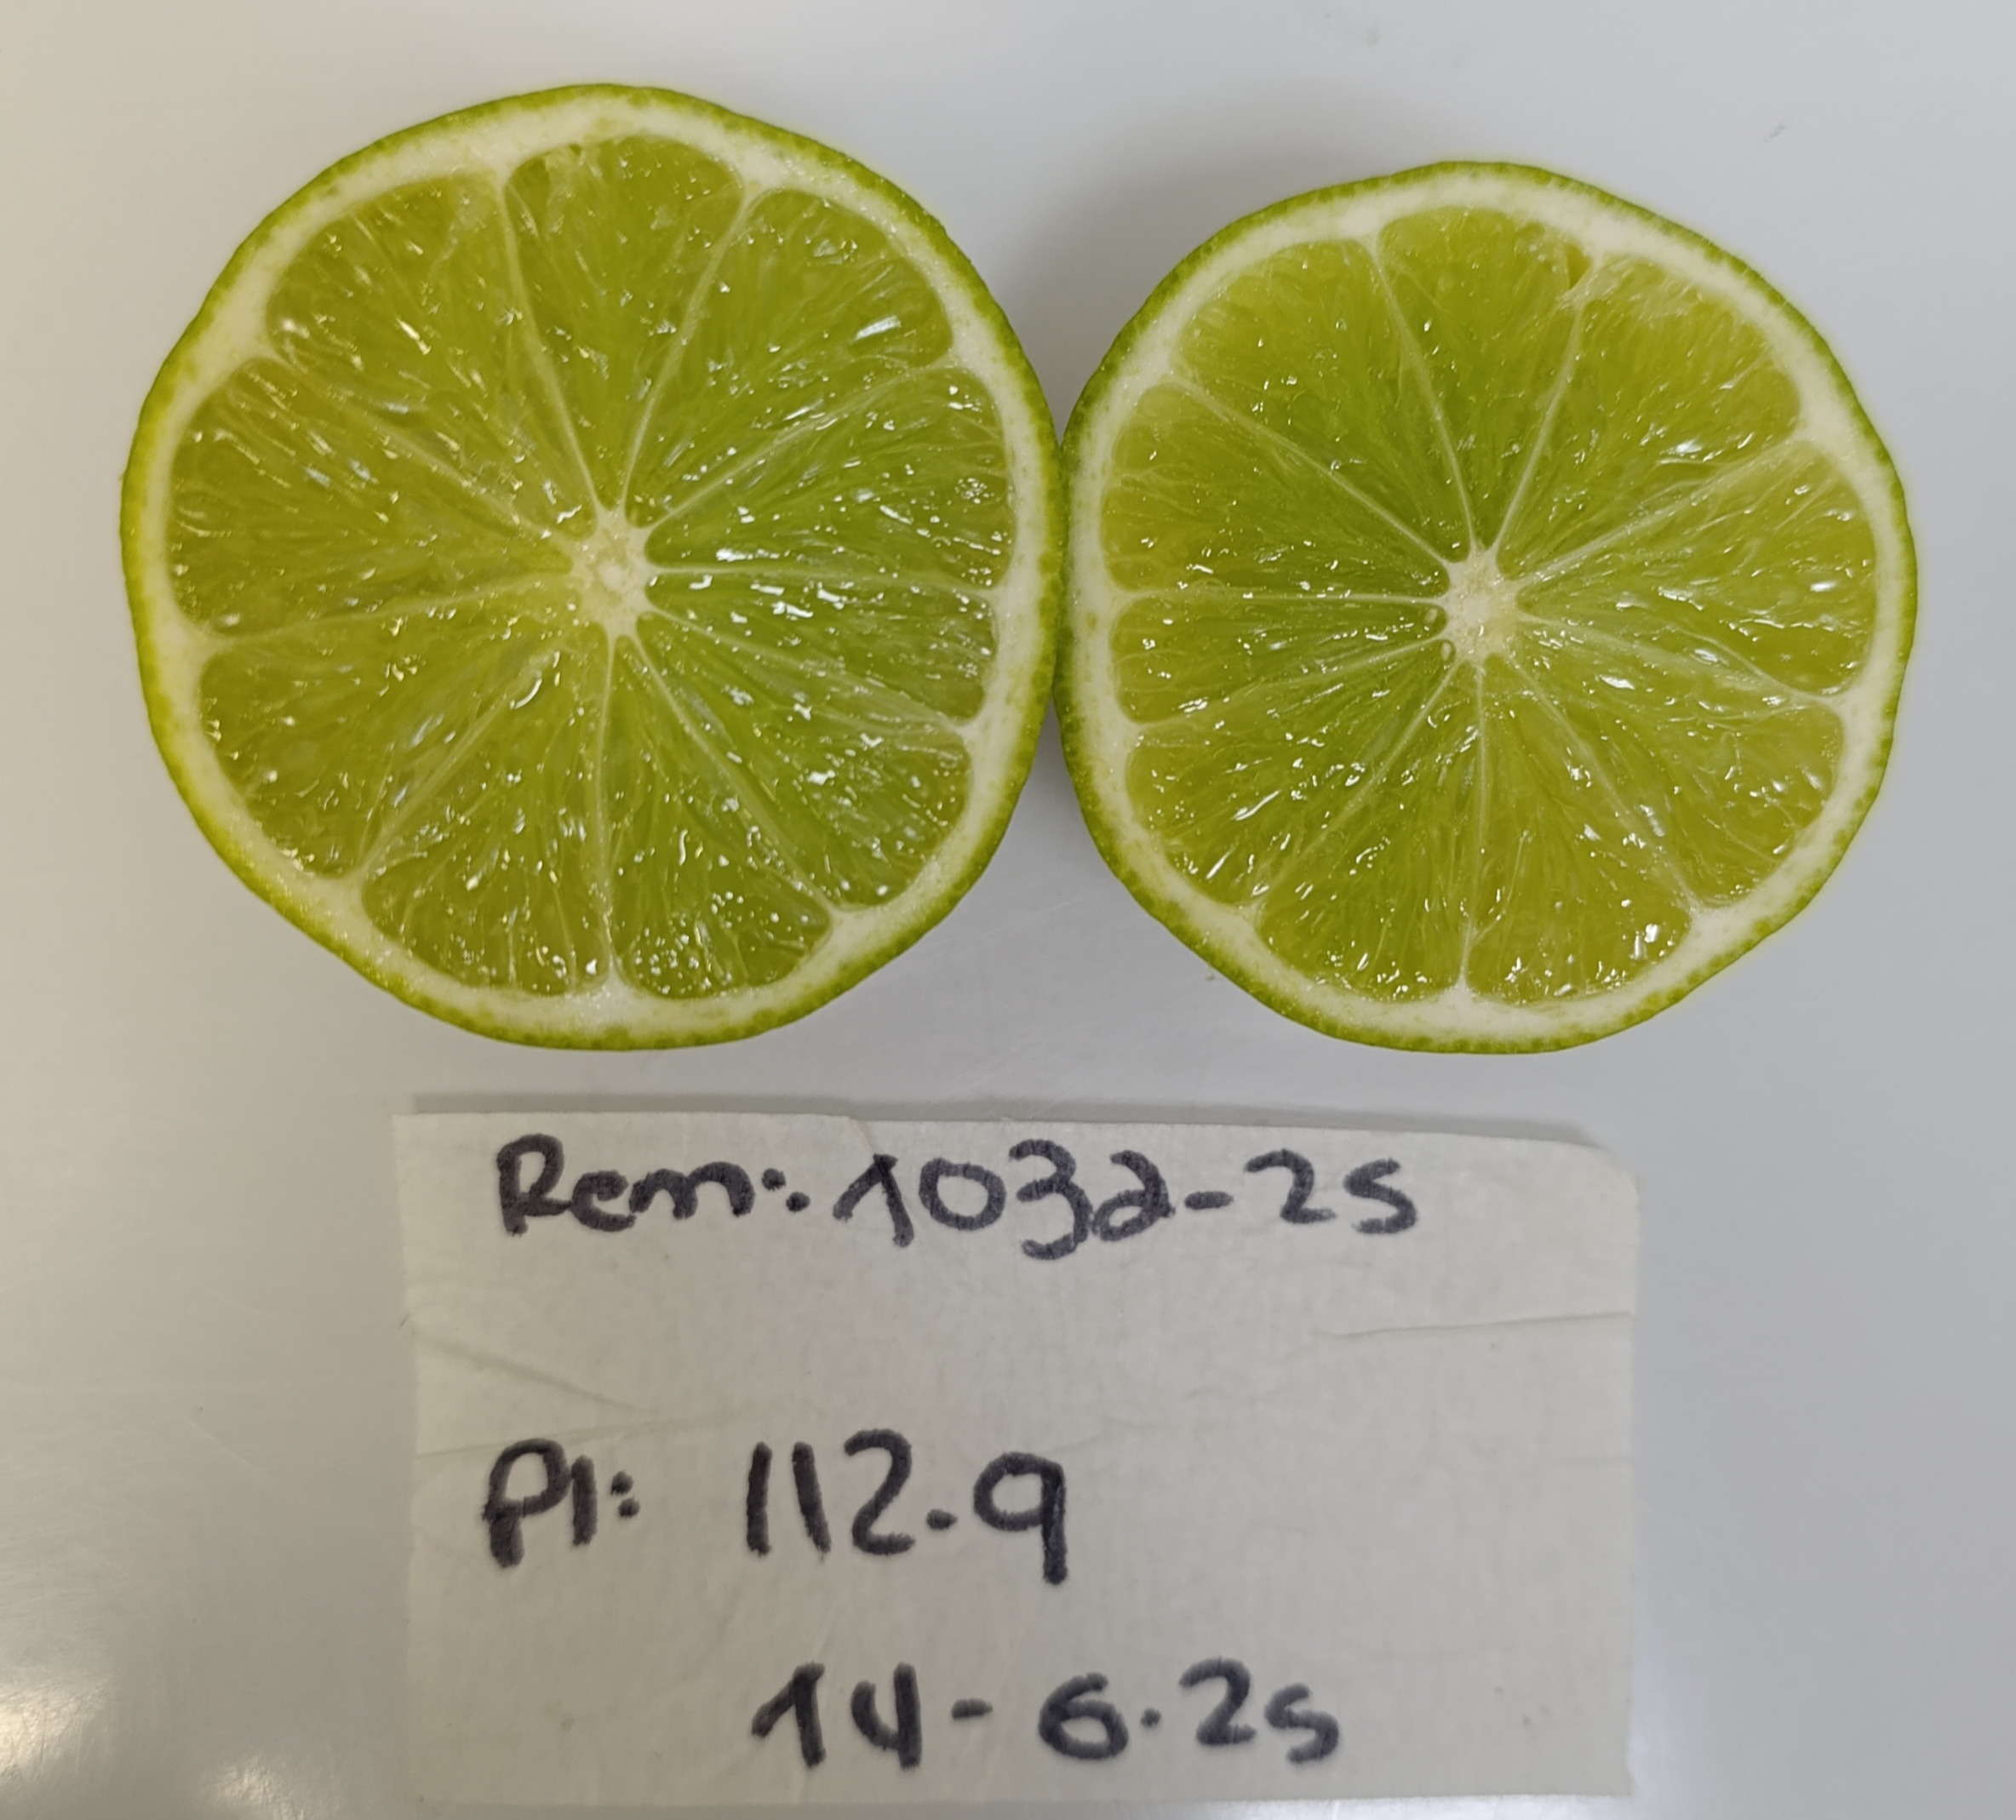 Rem: 1032-25
Pl: 112.9
14-6.25